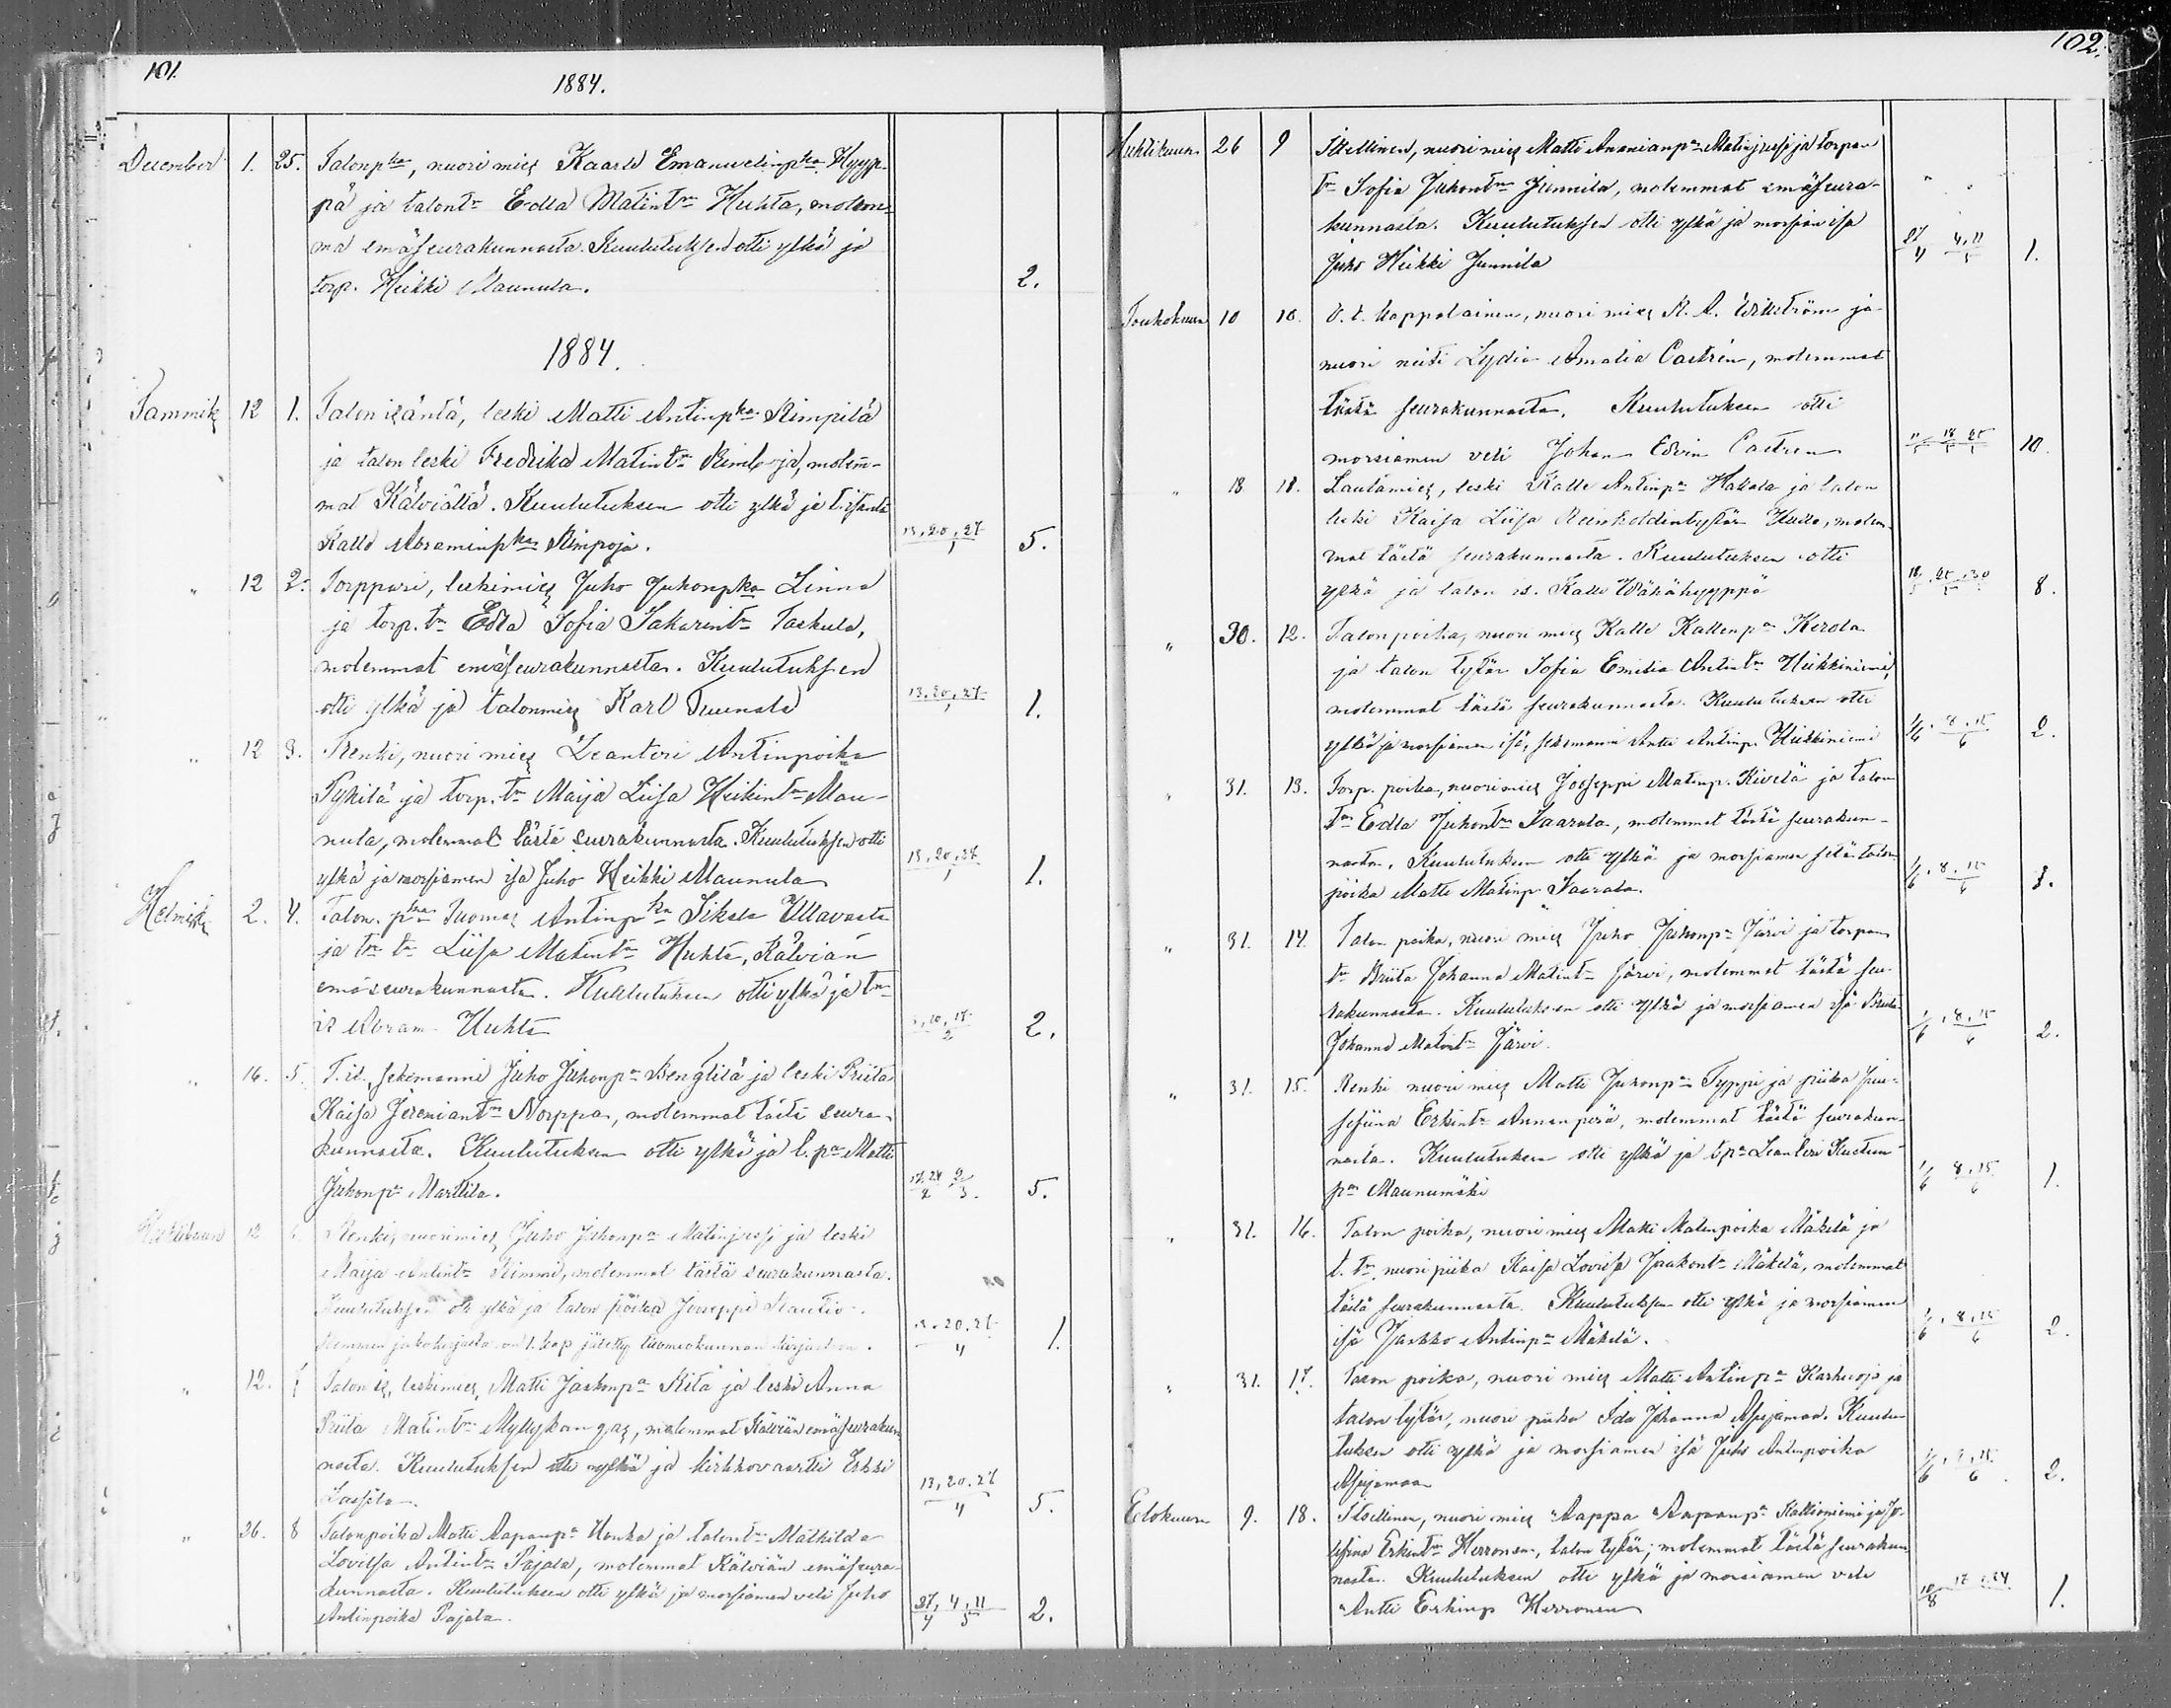 101.
1884.
December 1. 25. Talonpka, nuori mies Kaarlo Emanuelinpka Hyyp-
pä ja talontr Edla Matintr Huhta, molem-
ma emäseurakunnasta. Kuulutuksen otti ylkä ja
torp. Heikki Maunula. 2.
1884.
Tammik 12 1. Talon isäntä, leski Matti Antinpka Rimpilä
ja talon leski Fredrika Matintr, molem-
mat Kälviältä. Kuulutuksen otti ylkä ja t. isäntä
Kalle Abraminpka Rimpoja. 13, 20, 27/1 5.
" 12 2. Torppari, leskimies Juho Juhonpka Linna
ja torp. tr Edla Sofia Sakarintr Taskula,
molemmat emäseurakunnasta. Kuulutuksen
otti ylkä ja talonmies Karl Tuunala 13, 20, 27/1 1.
" 12 3. Renki, nuori mies Leanteri Antinpoika
Pykilä ja torp. tr Maija Liisa Heikintr Mau-
nula, molemmat tästä seurakunnasta. Kuulutuksen otti
ylkä ja morsiamen isä Juho Heikki Maunula 13, 20, 27/1 1.
Helmik 2. 4. Talon. pka Tuomas Antinpka Sikala Ullavasta
ja tr Liisa Matintr Huhta, Kälviän
emäseurakunnasta. Kuulutuksen otti ylkä ja tn
is Abram Huhta 3, 10, 17/2 2.
" 16. 5. T. is., seksmanni Juho Juhonpa Bengtilä ja leski Priita
Kaisa Jeremiantr Norppa, molemmat tästä seura-
kunnasta. Kuulutuksen otti ylkä ja t. pa Matti
Juhonpa Marttila. 17, 24/2 2/3. 5.
Huhtikuun 12 6. Renki, nuori mies, Juho Juhonpa Matinjussi ja leski
Maija Antintr Rimmi, molemmat tästä seurakunnasta.
Kuulutuksen otti ylkä ja talon poika Juseppi Rautio.
on 1. kap jätetty tuomiokunnan. 13, 20, 27/4 1.
" 12. 7 Talon is, leskimies, Matti Jaakonpa Kitä ja leski Anna
Priita Matintr Myllykangas, molemmat Kälviän emäseurakun-
nasta. Kuulutuksen otti ylkä ja kirkkovaartti Erkki
Lassila. 13, 20, 27/4 5.
" 26. 8 Talonpoika Matti Aapanpa Honka ja talontr Mathilda
Lovisa Antintr Pajala, molemmat Kälviän emäseura-
kunnasta. Kuulutuksen otti ylkä ja morsiamen veli Juho
Antinpoika Pajala. 27/4, 4, 11/5 2.
102.
Huhtikuun 26 9 Itsellinen, nuori mies Matti Ananianpa Matinjussi ja torpan
tr Sofia Juhontr Junnila, molemmat emäseura-
kunnasta. Kuulutuksen otti ylkä ja morsian isä
Juho Heikki Junnila 27/4 4, 11/5 1.
Toukokuun 10 10. V. t. kappalainen, nuori mies K. A. Wikström ja
nuori neiti Lydia Amalia Castrén, molemmat
tästä seurakunnasta. Kuulutuksen otti
morsiamen veli Johan Edvin Castren 11/5 18/5 25/5 10.
" 18 11. Lautamies, leski Kalle Antinpa Hakala ja talon
leski Kaisa Liisa Reinholdintytär, molem-
mat tästä seurakunnasta. Kuulutuksen otti
ylkä ja talon is. Kalle Wähähyyppä 18/5, 25/5, 30 8.
" 30. 12. Talonpoika, nuori mies Kalle Kallenpa Kerola
ja talon tytär Sofia Emilia Antintr Heikkiniemi,
molemmat tästä seurakunnasta. Kuulutuksen otti
ylkä ja morsiamen isä, seksmanni Antti Antinp. Heikkiniemi 1/6, 8, 15/6 2.
" 31. 13. Torp. poika, nuori mies Josseppi Matinp. Kivelä ja talon
tr Edla Juhontr Saarala, molemmat tästä seurakun-
nasta. Kuulutuksen otti ylkä ja morsiamen setä talon
poika Matti Matinp. Saarala. 1/6, 8, 15/6 1.
" 31. 14. Talon poika, nuori mies Juho Juhonpa Järvi ja torpan
tr Briita Johanna Matintr Järvi, molemmat tästä seu-
rakunnasta. Kuulutuksen otti ylkä ja morsiamen isä Briita
Johanna Matintr Järvi. 1/6, 8, 15/6 2.
" 31. 15. Renki nuori mies Matti Juhonpa Typpi ja piika Juu-
sefiina Erkintr Annanperä, molemmat tästä seurakun-
nasta. Kuulutuksen otti ylkä ja t. pa Leanteri Kustun
pa Maunumäki 1/6 8, 15/6 1.
" 31. 16. Talon poika, nuori mies Matti Matinpoika Mäkelä ja
t. tr, nuori piika Kaisa Lovisa Jaakontr Mäkelä, molemmat
tästä seurakunnasta. Kuulutuksen otti ylkä ja morsiamen
isä Jaakko Antinpa Mäkelä. 1/6, 8, 15/6 2.
" 31. 17. Talon poika, nuori mies Matti Antinpa Karhuoja ja
talon tytär, nuori piika Ida Johanna Apajamaa. Kuulu-
tuksen otti ylkä ja morsiamen isä Juho Antinpoika
Apajamaa 1/6, 8, 15/6. 2.
Elokuun 9. 18. Itsellinen, nuori mies Aappa Aapanpa Kallioniemi ja Jo-
sefina Erkintr Herronen, talon tytär, molemmat tästä seurakun-
nasta. Kuulutuksen otti ylkä ja morsiamen veli
Antti Erkinp Herronen 10/8 17, 24 1.